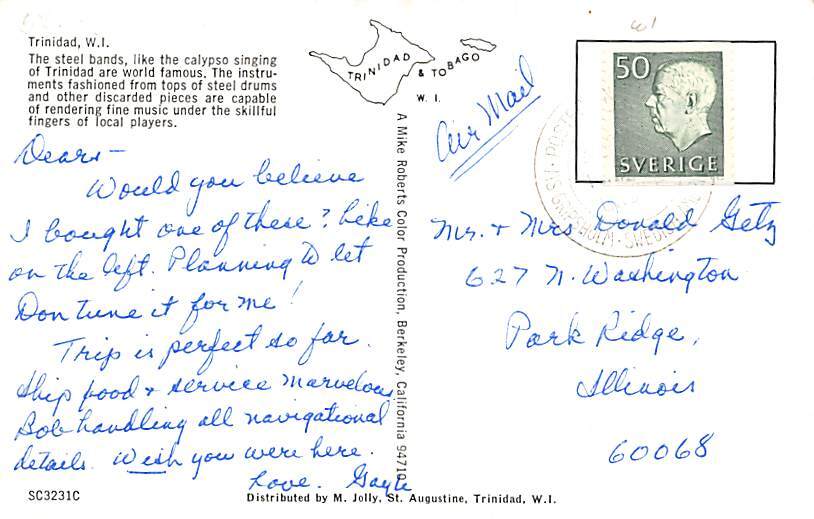 Trinidad, W.I.
The steel bands, like the calypso singing
of Trinidad are world famous. The instru-
ments fashioned from tops of steel drums
and other discarded pieces are capable
of rendering fine music under the skillful
fingers of local players.
TRINIDAD
& TOBAGO
W. I.
Air Mail
50
SVERIGE
Dears -
Would you believe
I bought one of these? Like
on the left. Planning to let
Don tune it for me!
Trip is perfect so far.
Ship food + service marvelous
Bob handling all navigational
details. Wish you were here.
Love. Gayle
A Mike Roberts Color Production, Berkeley, California 94710
Mr. + Mrs Donald Getz
627 N. Washington
Park Ridge,
Illinois
60068
SC3231C
Distributed by M. Jolly, St. Augustine, Trinidad, W.I.